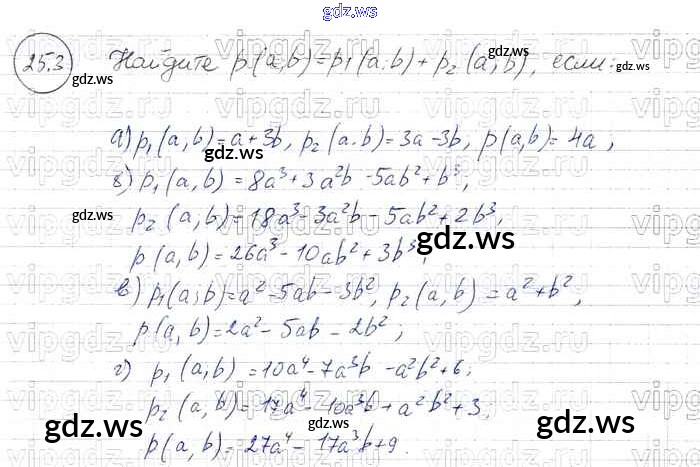 gdz.ws
25.3 Найдите p(a,b)=p₁(a,b)+p₂(a,b), если:
gdz.ws
gdz.ws
а) p₁(a,b)=a+3b, p₂(a.b)=3a-3b, p(a,b)=4a;
gdz.ws
gdz.ws
б) p₁(a,b)=8a³+3a²b-5ab²+b³,
p₂(a,b)=18a³-3a²b-5ab²+2b³,
gdz.ws
p(a,b)=26a³-10ab²+3b³;
gdz.ws
в) p₁(a;b)=a²-5ab-3b², p₂(a,b)=a²+b²,
p(a,b)=2a²-5ab-2b²;
г) p₁(a,b)=10a⁴-7a³b-a²b²+6,
p₂(a,b)=17a⁴-10a³b+a²b²+3,
gdz.ws
gdz.ws
gdz.ws
p(a,b)=27a⁴-17a³b+9.